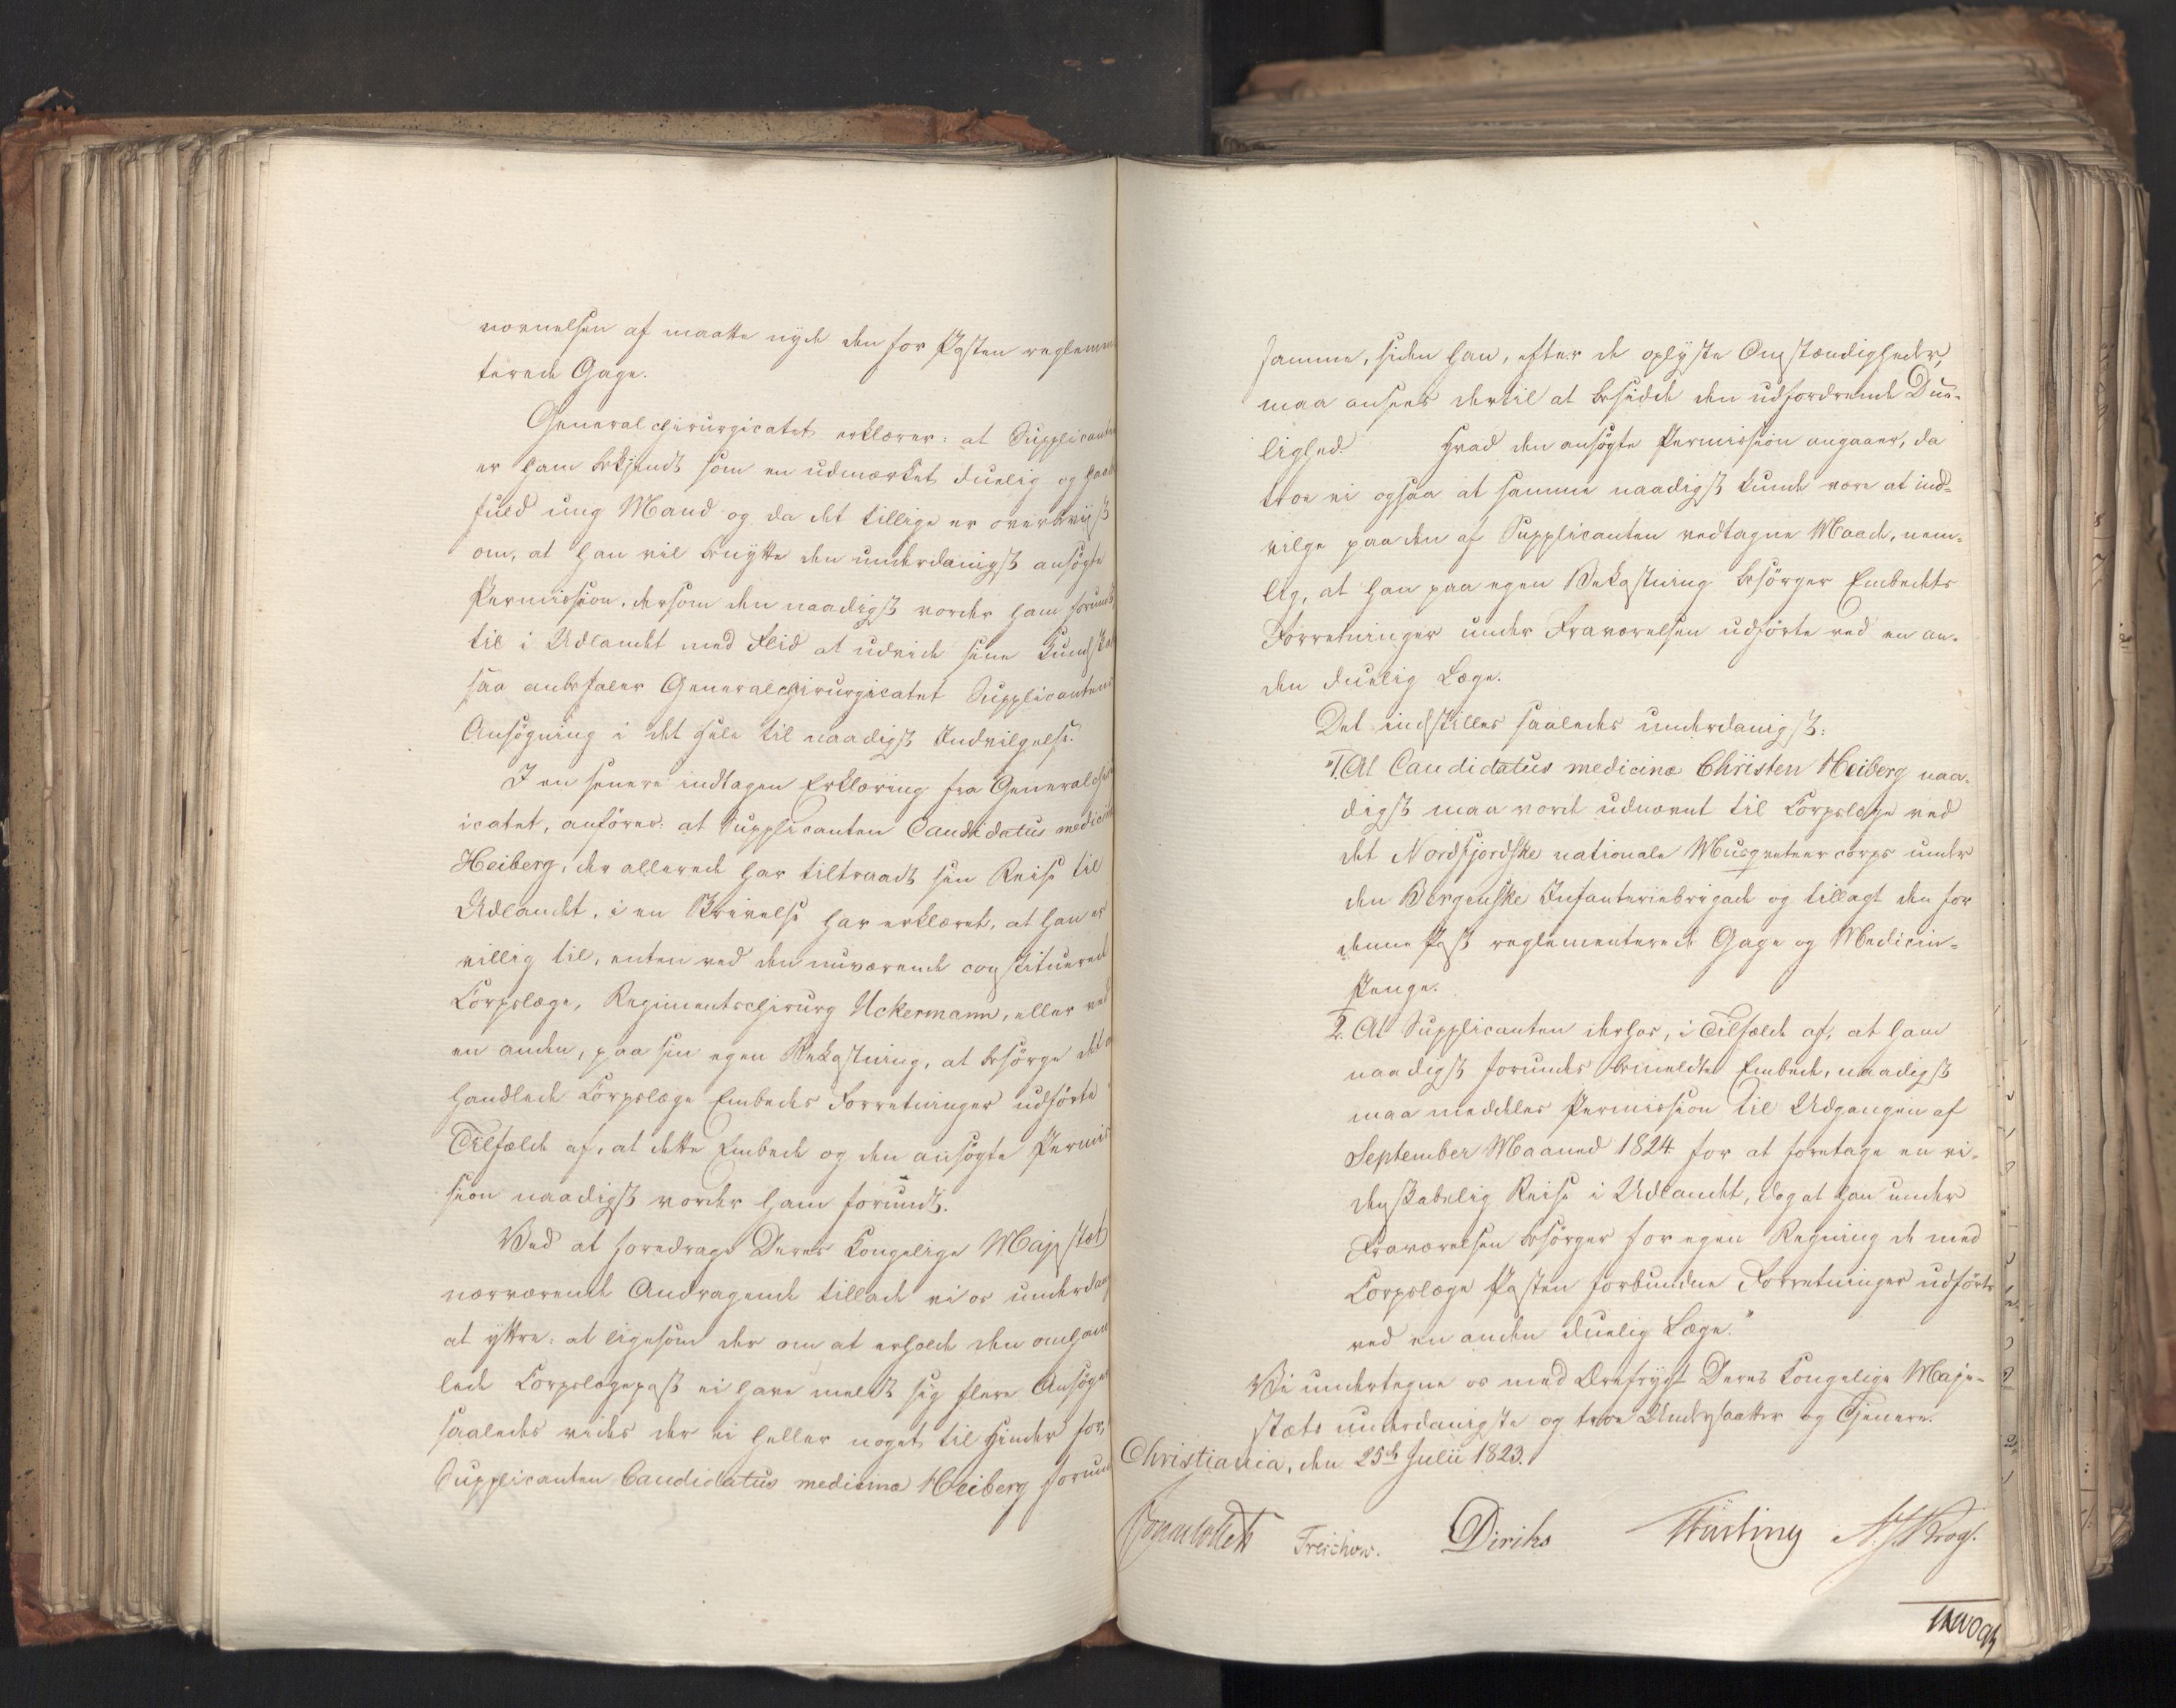 vornelsen af maatte nyde den for Posten reglemen
terede Gage.
Generalchirurgicatet erklærer: at Supplicanten
er ham bekjendt som en udmærket duelig og haab
fuld ung Mand og da det tillige er overbeviist
om, at han vil benytte den underdanigst ansøgte
Permission, dersom den naadigst vorder ham forundt
til i Udlandet med Flid at udvide sine Kundskab
saa anbefaler Generalchirurgicatet Supplicantens
Ansøgning i det Hele til naadigst Indvilgelse.
I en senere indtagen Erklæring fra Generalchir
icatet, anføres: at Supplicanten Candidatus medicin
Heiberg, der allerede har tiltraadt sin Reise til
Udlandet, i en Skrivelse har erklæret, at han er
villig til, enten ved den nuværende constituerede
Corpslæge, Regimentschirurg Uckermann, eller ved
en anden, paa sin egen Bekostning, at besørge det o
handlede Corpslæge Embedes Forretninger udførte
Tilfælde af, at dette Embede og den ansøgte Permis
sion naadigst vorder ham forundt.
Ved at foredrage Deres Kongelige Majestæt
nærværende Andragende tillade vi os underdan
at yttre: at ligesom der om at erholde den omhand
lede Corpslægepost ei have meldt sig flere Ansøger
saaledes vides der ei heller noget til Hinder for,
Supplicanten Candidatus medicinæ Heiberg forund
samme, siden han, efter de oplyste Omstændigheder,
maa ansees dertil at besidde den udfordrende Due-
lighed. Hvad den ansøgte Permission angaaer, da
troe vi ogsaa at samme naadigst kunde være at ind-
vilge paa den af Supplicanten vedtagne Maade, nem-
lig, at han paa egen Bekostning besørger Embedets
Forretninger under Fraværelsen udførte ved en an-
den duelig Læge.
Det indstilles saaledes underdanigst:
"1. At Candidatus medicinæ Christen Heiberg naa-
digst maa vorde udnævnt til Corpslæge ved
det Nordfjordske nationale Musqueteercorps under
den Bergenske Infanteriebrigade og tillagt den for
denne Post reglementerede Gage og Medicin-
Penge.
2. At Supplicanten derhos, i Tilfælde af, at ham
naadigst forundes bemeldte Embede, naadigst
maa meddeles Permission til Udgangen af
September Maaned 1824 for at foretage en vi-
denskabelig Reise i Udlandet, dog at han under
Fraværelsen besørger for egen Regning de med
Corpslæge Posten forbundne Forretninger udførte
ved en anden duelig Læge."
Vi undertegne os med Ærefrygt Deres Kongelige Maje-
stæts underdanigste og troe Undersaatter og Tjenere.
Christiania, den 25de Julii 1823.
JonasCollett Treschow. Diriks Fasting N.J. Krog.